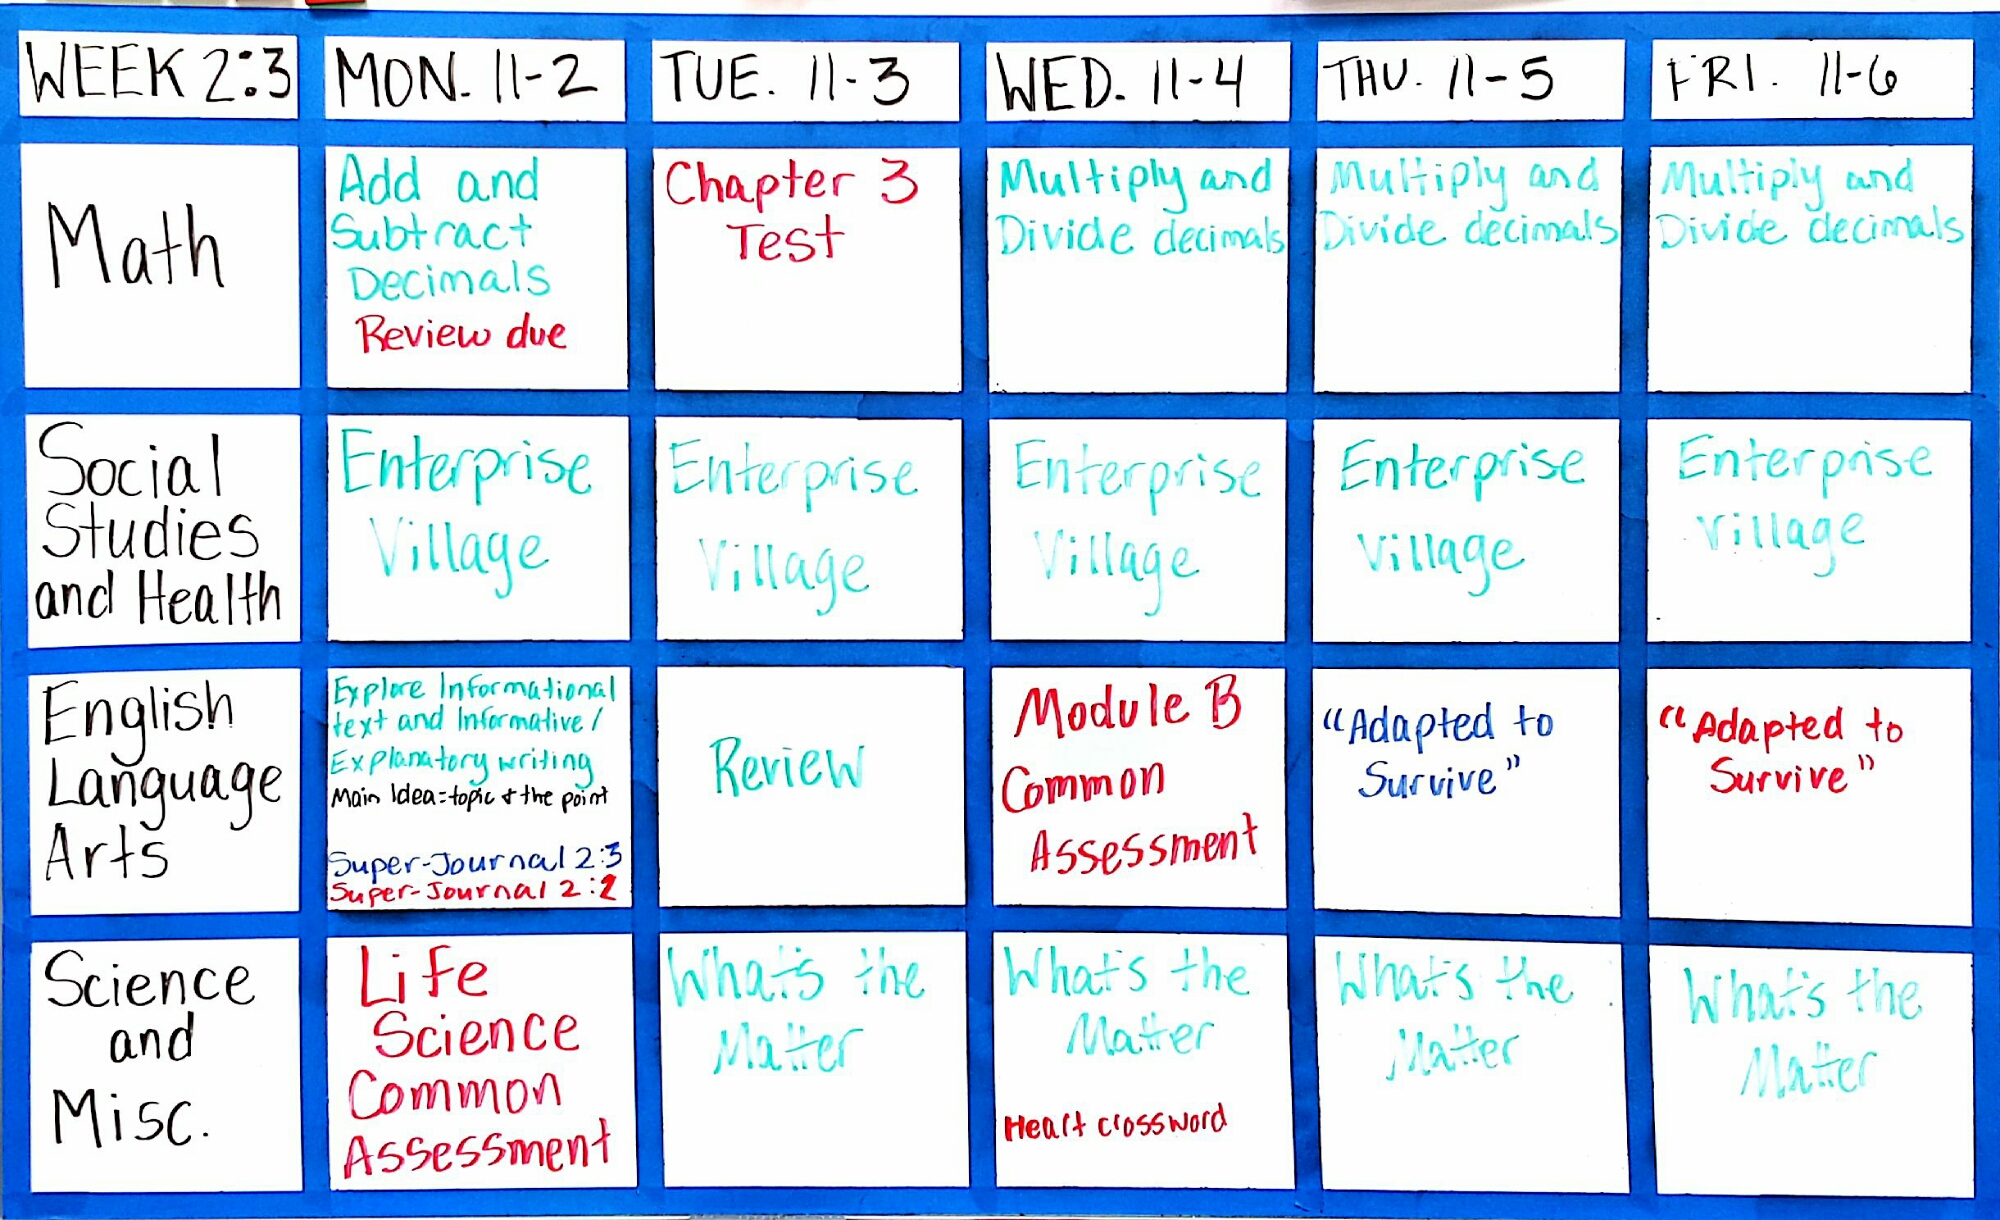 WEEK 2:3
MON. 11-2
TUE. 11-3
WED. 11-4
THU. 11-5
FRI. 11-6
Math
Add and
Subtract
Decimals
Review due
Chapter 3
Test
Multiply and
Divide decimals
Multiply and
Divide decimals
Multiply and
Divide decimals
Social
Studies
and Health
Enterprise
Village
Enterprise
Village
Enterprise
Village
Enterprise
Village
Enterprise
Village
English
Language
Arts
Explore Informational
text and Informative/
Explanatory writing
Main Idea=topic & the point
Super-Journal 2:3
Super-Journal 2:2
Review
Module B
Common
Assessment
"Adapted to
Survive"
"Adapted to
Survive"
Science
and
Misc.
Life
Science
Common
Assessment
What's the
Matter
What's the
Matter
Heart crossword
What's the
Matter
What's the
Matter